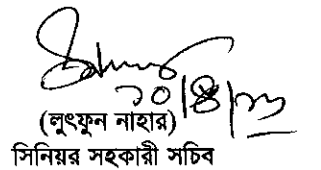 ১০|৪|২৩
(লুৎফুন নাহার)
সিনিয়র সহকারী সচিব